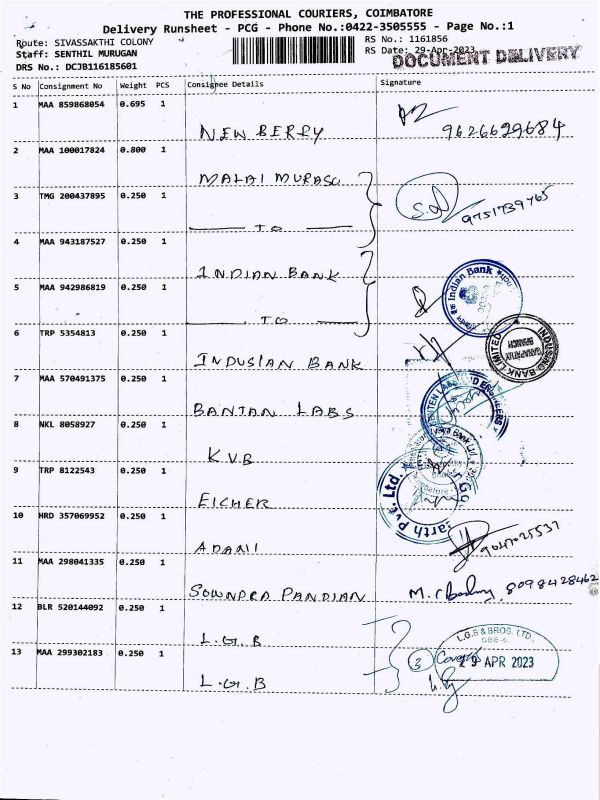 THE PROFESSIONAL COURIERS, COIMBATORE
Delivery Runsheet - PCG - Phone No.:0422-3505555 - Page No.:1
Route: SIVASSAKTHI COLONY RS No.: 1161856
Staff: SENTHIL MURUGAN RS Date: 29-Apr-2023
DRS No.: DCJB116185601 DOCUMENT DELIVERY
S No Consignment No Weight PCS Consignee Details Signature
1 MAA 859868054 0.695 1
NEW BERRY 9626629684
2 MAA 100017824 0.800 1
MALAI MURASU
3 TMG 200437895 0.250 1
9751739765
TO
4 MAA 943187527 0.250 1
INDIAN BANK
Indian Bank
5 MAA 942986819 0.250 1
TO
6 TRP 5354813 0.250 1
INDUSIAN BANK
INDUSIND BANK LIMITED
BRANCH
7 MAA 570491375 0.250 1
BANTAN LABS
8 NKL 8058927 0.250 1
K.V.B
9 TRP 8122543 0.250 1
EICHER
earth Pvt. Ltd.
10 HRD 357069952 0.250 1
ADANI
11 MAA 298041335 0.250 1
SOWNDRA PANDIAN 8098428462
12 BLR 520144092 0.250 1
L.G.B
L.G.B & BROS. LTD.,
CBE-6.
13 MAA 299302183 0.250 1
3
29 APR 2023
L.G.B